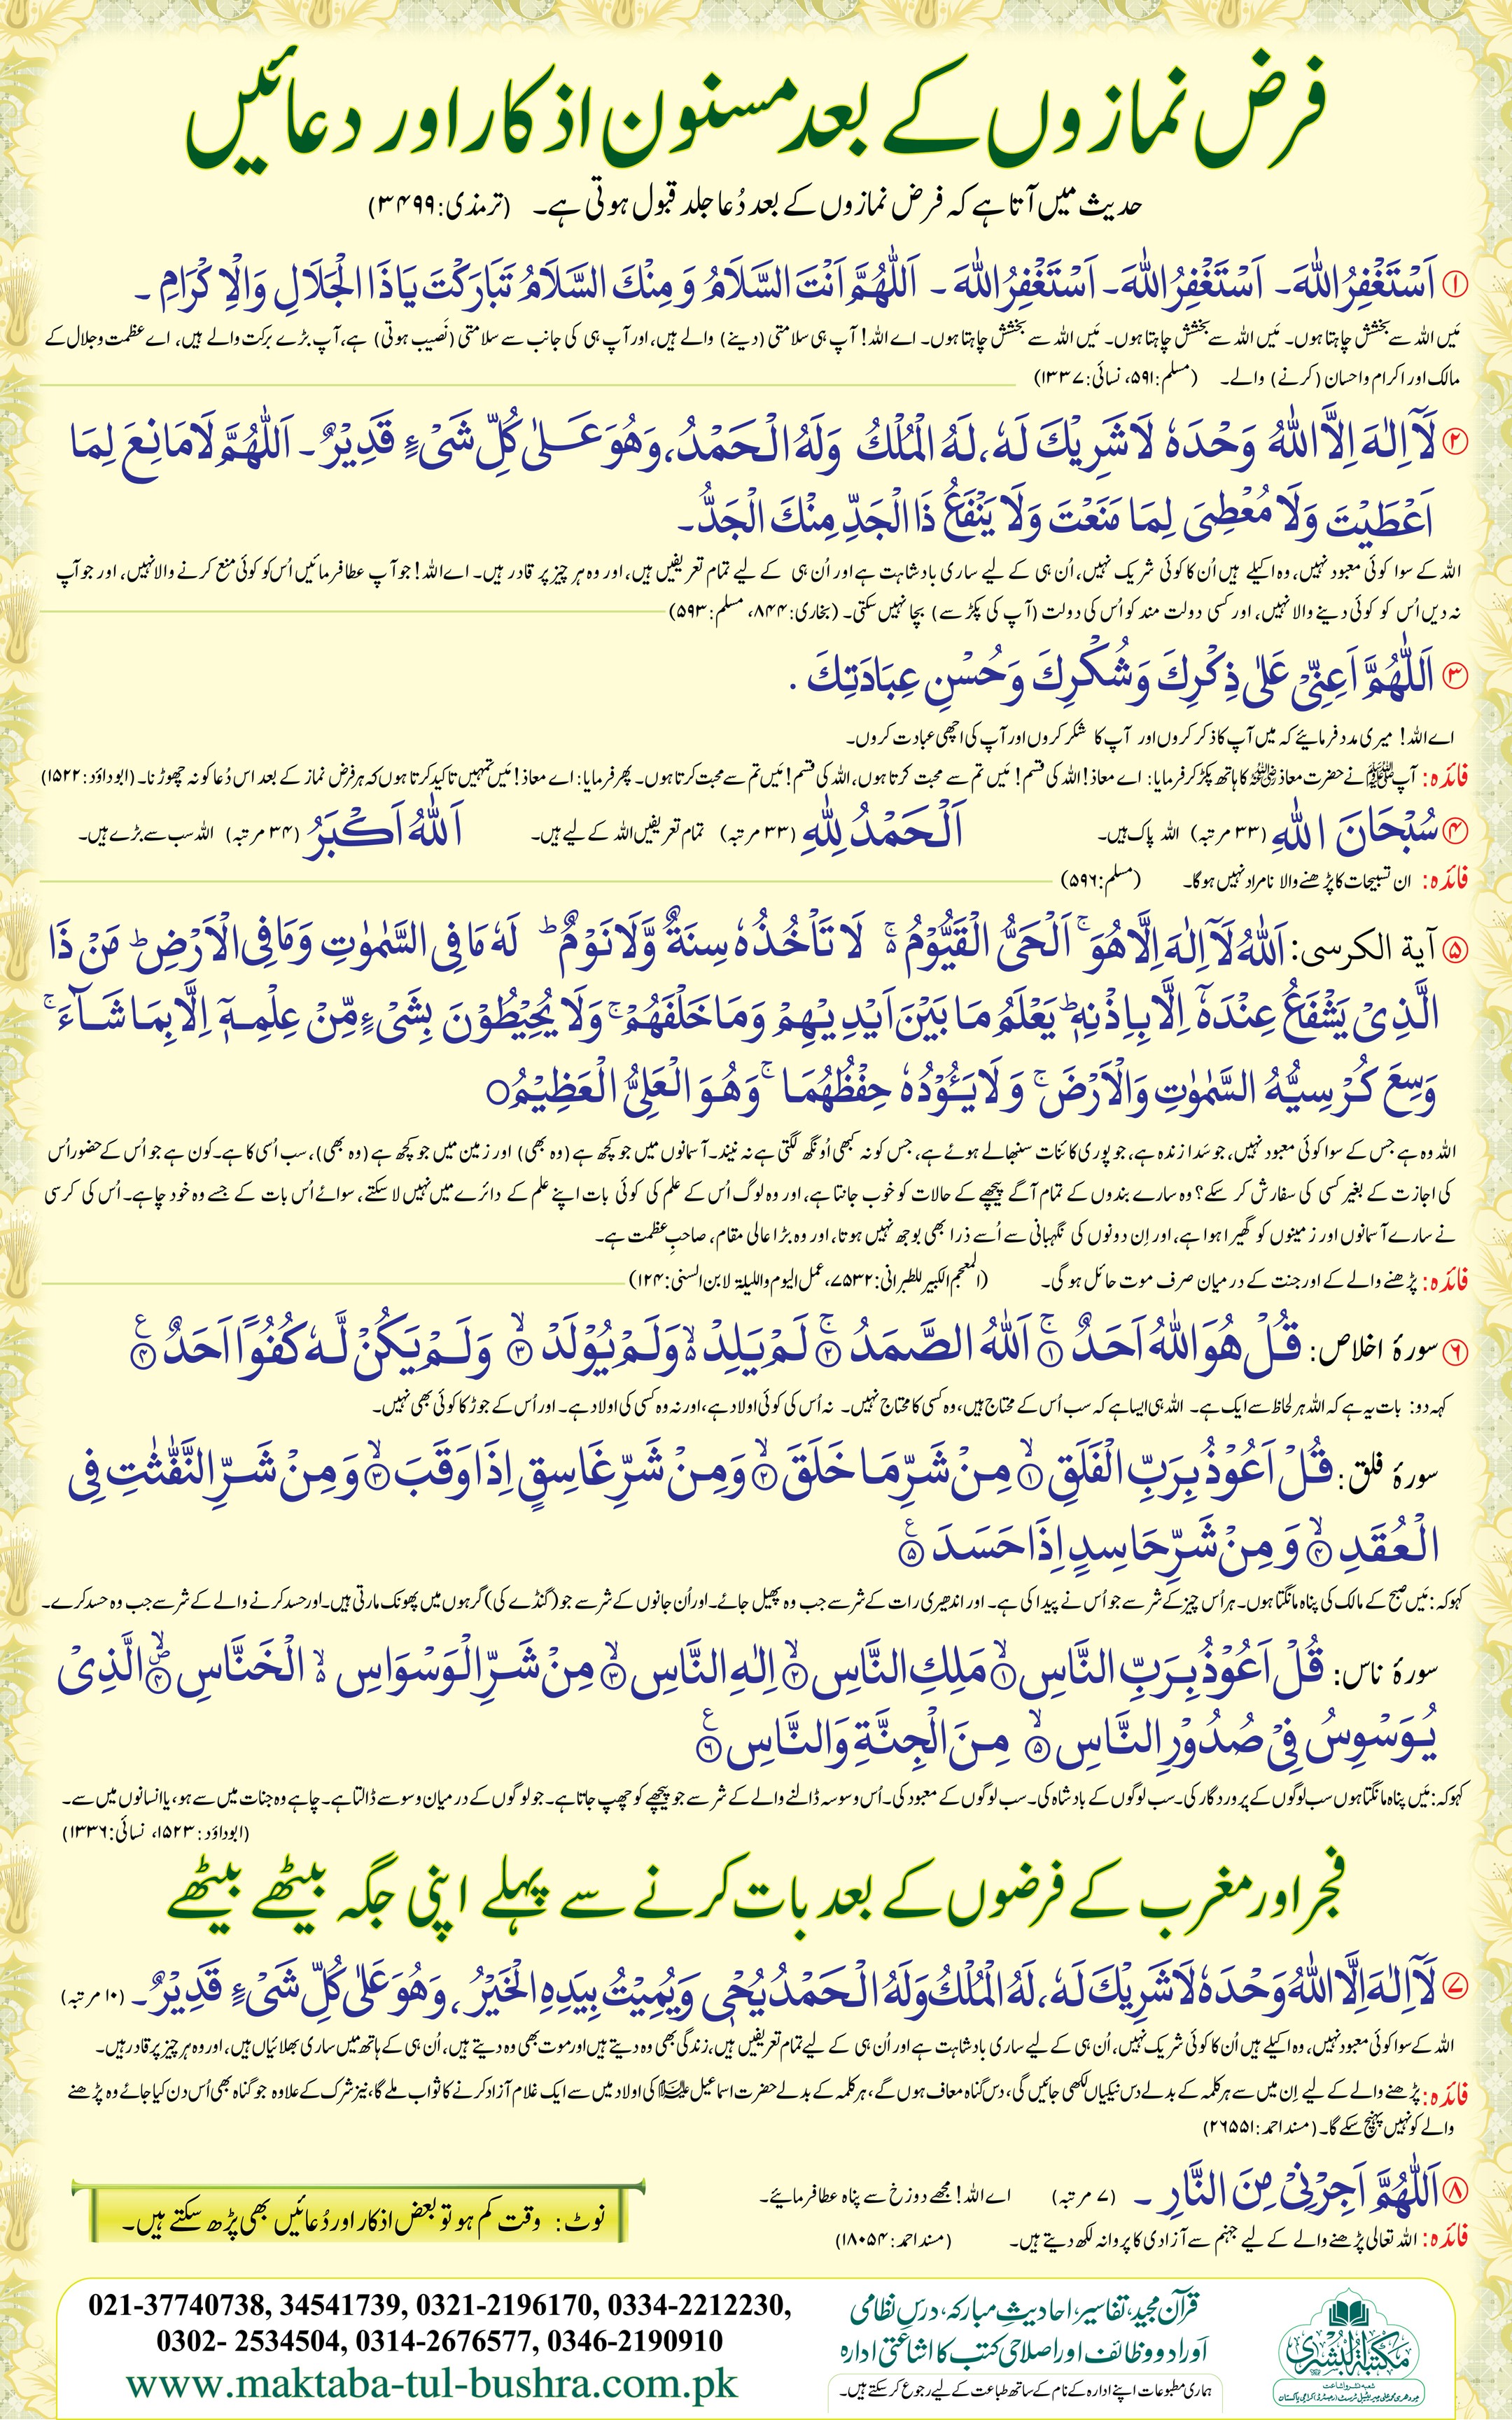 فرض نمازوں کے بعد مسنون اذکار اور دعائیں
حدیث میں آتا ہے کہ فرض نمازوں کے بعد دُعا جلد قبول ہوتی ہے۔ (ترمذی: ۳۴۹۹)
۱ اَسْتَغْفِرُ اللّٰهَ۔ اَسْتَغْفِرُ اللّٰهَ۔ اَسْتَغْفِرُ اللّٰهَ ۔ اَللّٰهُمَّ اَنْتَ السَّلَامُ وَ مِنْكَ السَّلَامُ تَبَارَكْتَ يَا ذَا الْجَلَالِ وَالْاِكْرَامِ ۔
مَیں اللہ سے بخشش چاہتا ہوں۔ مَیں اللہ سے بخشش چاہتا ہوں۔ مَیں اللہ سے بخشش چاہتا ہوں۔ اے اللہ! آپ ہی سلامتی (دینے) والے ہیں، اور آپ ہی کی جانب سے سلامتی (نَصیب ہوتی) ہے، آپ بڑے برکت والے ہیں، اے عظمت و جلال کے
مالک اور اکرام و احسان (کرنے) والے۔ (مسلم: ۵۹۱، نسائی: ۱۳۳۷)
۲ لَآ اِلٰهَ اِلَّا اللّٰهُ وَحْدَهٗ لَا شَرِيْكَ لَهٗ، لَهُ الْمُلْكُ وَلَهُ الْحَمْدُ، وَهُوَ عَلٰى كُلِّ شَىْءٍ قَدِيْرٌ۔ اَللّٰهُمَّ لَا مَانِعَ لِمَا
اَعْطَيْتَ وَلَا مُعْطِىَ لِمَا مَنَعْتَ وَلَا يَنْفَعُ ذَا الْجَدِّ مِنْكَ الْجَدُّ۔
اللہ کے سوا کوئی معبود نہیں، وہ اکیلے ہیں اُن کا کوئی شریک نہیں، اُن ہی کے لیے ساری بادشاہت ہے اور اُن ہی کے لیے تمام تعریفیں ہیں، اور وہ ہر چیز پر قادر ہیں۔ اے اللہ! جو آپ عطا فرمائیں اُس کو کوئی منع کرنے والا نہیں، اور جو آپ
نہ دیں اُس کو کوئی دینے والا نہیں، اور کسی دولت مند کو اُس کی دولت (آپ کی پکڑ سے) بچا نہیں سکتی۔ (بخاری: ۸۴۴، مسلم: ۵۹۳)
۳ اَللّٰهُمَّ اَعِنِّىْ عَلٰى ذِكْرِكَ وَشُكْرِكَ وَحُسْنِ عِبَادَتِكَ .
اے اللہ! میری مدد فرمایئے کہ میں آپ کا ذکر کروں اور آپ کا شکر کروں اور آپ کی اچھی عبادت کروں۔
فائدہ: آپ ﷺ نے حضرت معاذ رضی اللہ عنہ کا ہاتھ پکڑ کر فرمایا: اے معاذ! اللہ کی قسم! مَیں تم سے محبت کرتا ہوں، اللہ کی قسم! مَیں تم سے محبت کرتا ہوں۔ پھر فرمایا: اے معاذ! مَیں تمہیں تاکید کرتا ہوں کہ ہر فرض نماز کے بعد اس دُعا کو نہ چھوڑنا۔ (ابوداؤد: ۱۵۲۲)
۴ سُبْحَانَ اللّٰهِ (۳۳ مرتبہ) اللہ پاک ہیں۔ اَلْحَمْدُ لِلّٰهِ (۳۳ مرتبہ) تمام تعریفیں اللہ کے لیے ہیں۔ اَللّٰهُ اَكْبَرُ (۳۴ مرتبہ) اللہ سب سے بڑے ہیں۔
فائدہ: ان تسبیحات کا پڑھنے والا نامراد نہیں ہوگا۔ (مسلم: ۵۹۶)
۵ آیۃ الکرسی: اَللّٰهُ لَآ اِلٰهَ اِلَّا هُوَ ۚ اَلْحَىُّ الْقَيُّوْمُ ۚ لَا تَاْخُذُهٗ سِنَةٌ وَّلَا نَوْمٌ ؕ لَهٗ مَا فِى السَّمٰوٰتِ وَمَا فِى الْاَرْضِ ؕ مَنْ ذَا
الَّذِىْ يَشْفَعُ عِنْدَهٗٓ اِلَّا بِاِذْنِهٖ ؕ يَعْلَمُ مَا بَيْنَ اَيْدِيْهِمْ وَمَا خَلْفَهُمْ ۚ وَلَا يُحِيْطُوْنَ بِشَىْءٍ مِّنْ عِلْمِهٖٓ اِلَّا بِمَا شَآءَ ۚ
وَسِعَ كُرْسِيُّهُ السَّمٰوٰتِ وَالْاَرْضَ ۚ وَلَا يَـُٔوْدُهٗ حِفْظُهُمَا ۚ وَهُوَ الْعَلِىُّ الْعَظِيْمُ ○
اللہ وہ ہے جس کے سوا کوئی معبود نہیں، جو سَدا زندہ ہے، جو پوری کائنات سنبھالے ہوئے ہے، جس کو نہ کبھی اُونگھ لگتی ہے نہ نیند۔ آسمانوں میں جو کچھ ہے (وہ بھی) اور زمین میں جو کچھ ہے (وہ بھی)، سب اُسی کا ہے۔ کون ہے جو اُس کے حضور اُس
کی اجازت کے بغیر کسی کی سفارش کر سکے؟ وہ سارے بندوں کے تمام آگے پیچھے کے حالات کو خوب جانتا ہے، اور وہ لوگ اُس کے علم کی کوئی بات اپنے علم کے دائرے میں نہیں لا سکتے، سوائے اُس بات کے جسے وہ خود چاہے۔ اُس کی کرسی
نے سارے آسمانوں اور زمینوں کو گھیرا ہوا ہے، اور اِن دونوں کی نگہبانی سے اُسے ذرا بھی بوجھ نہیں ہوتا، اور وہ بڑا عالی مقام، صاحبِ عظمت ہے۔
فائدہ: پڑھنے والے کے اور جنت کے درمیان صرف موت حائل ہوگی۔ (المعجم الکبیر للطبرانی: ۷۵۳۲، عمل الیوم واللیلۃ لابن السنی: ۱۲۴)
۶ سورۂ اخلاص: قُلْ هُوَ اللّٰهُ اَحَدٌ ۚ ۱ اَللّٰهُ الصَّمَدُ ۚ ۲ لَمْ يَلِدْ ۙ وَلَمْ يُوْلَدْ ۙ ۳ وَلَمْ يَكُنْ لَّهٗ كُفُوًا اَحَدٌ ۴ ع
کہہ دو: بات یہ ہے کہ اللہ ہر لحاظ سے ایک ہے۔ اللہ ہی ایسا ہے کہ سب اُس کے محتاج ہیں، وہ کسی کا محتاج نہیں۔ نہ اُس کی کوئی اولاد ہے، اور نہ وہ کسی کی اولاد ہے۔ اور اُس کے جوڑ کا کوئی بھی نہیں۔
سورۂ فلق: قُلْ اَعُوْذُ بِرَبِّ الْفَلَقِ ۙ ۱ مِنْ شَرِّ مَا خَلَقَ ۙ ۲ وَمِنْ شَرِّ غَاسِقٍ اِذَا وَقَبَ ۙ ۳ وَمِنْ شَرِّ النَّفّٰثٰتِ فِى
الْعُقَدِ ۙ ۴ وَمِنْ شَرِّ حَاسِدٍ اِذَا حَسَدَ ۵ ع
کہو کہ: مَیں صبح کے مالک کی پناہ مانگتا ہوں۔ ہر اُس چیز کے شر سے جو اُس نے پیدا کی ہے۔ اور اندھیری رات کے شر سے جب وہ پھیل جائے۔ اور اُن جانوں کے شر سے جو (گنڈے کی) گرہوں میں پھونک مارتی ہیں۔ اور حسد کرنے والے کے شر سے جب وہ حسد کرے۔
سورۂ ناس: قُلْ اَعُوْذُ بِرَبِّ النَّاسِ ۙ ۱ مَلِكِ النَّاسِ ۙ ۲ اِلٰهِ النَّاسِ ۙ ۳ مِنْ شَرِّ الْوَسْوَاسِ ۙ الْخَنَّاسِ ۴ الَّذِىْ
يُوَسْوِسُ فِىْ صُدُوْرِ النَّاسِ ۙ ۵ مِنَ الْجِنَّةِ وَالنَّاسِ ۶ ع
کہو کہ: مَیں پناہ مانگتا ہوں سب لوگوں کے پروردگار کی۔ سب لوگوں کے بادشاہ کی۔ سب لوگوں کے معبود کی۔ اُس وسوسہ ڈالنے والے کے شر سے جو پیچھے کو چھپ جاتا ہے۔ جو لوگوں کے درمیان وسوسے ڈالتا ہے۔ چاہے وہ جنات میں سے ہو، یا انسانوں میں سے۔
(ابوداؤد: ۱۵۲۳، نسائی: ۱۳۳۶)
فجر اور مغرب کے فرضوں کے بعد بات کرنے سے پہلے اپنی جگہ بیٹھے بیٹھے
۷ لَآ اِلٰهَ اِلَّا اللّٰهُ وَحْدَهٗ لَا شَرِيْكَ لَهٗ، لَهُ الْمُلْكُ وَلَهُ الْحَمْدُ يُحْيِىْ وَيُمِيْتُ بِيَدِهِ الْخَيْرُ، وَهُوَ عَلٰى كُلِّ شَىْءٍ قَدِيْرٌ۔ (۱۰ مرتبہ)
اللہ کے سوا کوئی معبود نہیں، وہ اکیلے ہیں اُن کا کوئی شریک نہیں، اُن ہی کے لیے ساری بادشاہت ہے اور اُن ہی کے لیے تمام تعریفیں ہیں، زندگی بھی وہ دیتے ہیں اور موت بھی وہ دیتے ہیں، اُن ہی کے ہاتھ میں ساری بھلائیاں ہیں، اور وہ ہر چیز پر قادر ہیں۔
فائدہ: پڑھنے والے کے لیے اِن میں سے ہر کلمہ کے بدلے دس نیکیاں لکھی جائیں گی، دس گناہ معاف ہوں گے، ہر کلمہ کے بدلے حضرت اسماعیل علیہ السلام کی اولاد میں سے ایک غلام آزاد کرنے کا ثواب ملے گا، نیز شرک کے علاوہ جو گناہ بھی اُس دن کیا جائے وہ پڑھنے
والے کو نہیں پہنچ سکے گا۔ (مسند احمد: ۲۶۵۵۱)
۸ اَللّٰهُمَّ اَجِرْنِىْ مِنَ النَّارِ ۔ (۷ مرتبہ) اے اللہ! مجھے دوزخ سے پناہ عطا فرمایئے۔
فائدہ: اللہ تعالیٰ پڑھنے والے کے لیے جہنم سے آزادی کا پروانہ لکھ دیتے ہیں۔ (مسند احمد: ۱۸۰۵۴)
نوٹ: وقت کم ہو تو بعض اذکار اور دُعائیں بھی پڑھ سکتے ہیں۔
مكتبة البشرى
شعبہ نشر و اشاعت
چودھری محمد علی چیریٹیبل ٹرسٹ (رجسٹرڈ) کراچی پاکستان
قرآن مجید، تفاسیر، احادیثِ مبارکہ، درسِ نظامی
اَوراد و وظائف اور اصلاحی کتب کا اشاعتی ادارہ
ہماری مطبوعات اپنے ادارہ کے نام کے ساتھ طباعت کے لیے رجوع کر سکتے ہیں۔
021-37740738, 34541739, 0321-2196170, 0334-2212230,
0302- 2534504, 0314-2676577, 0346-2190910
www.maktaba-tul-bushra.com.pk